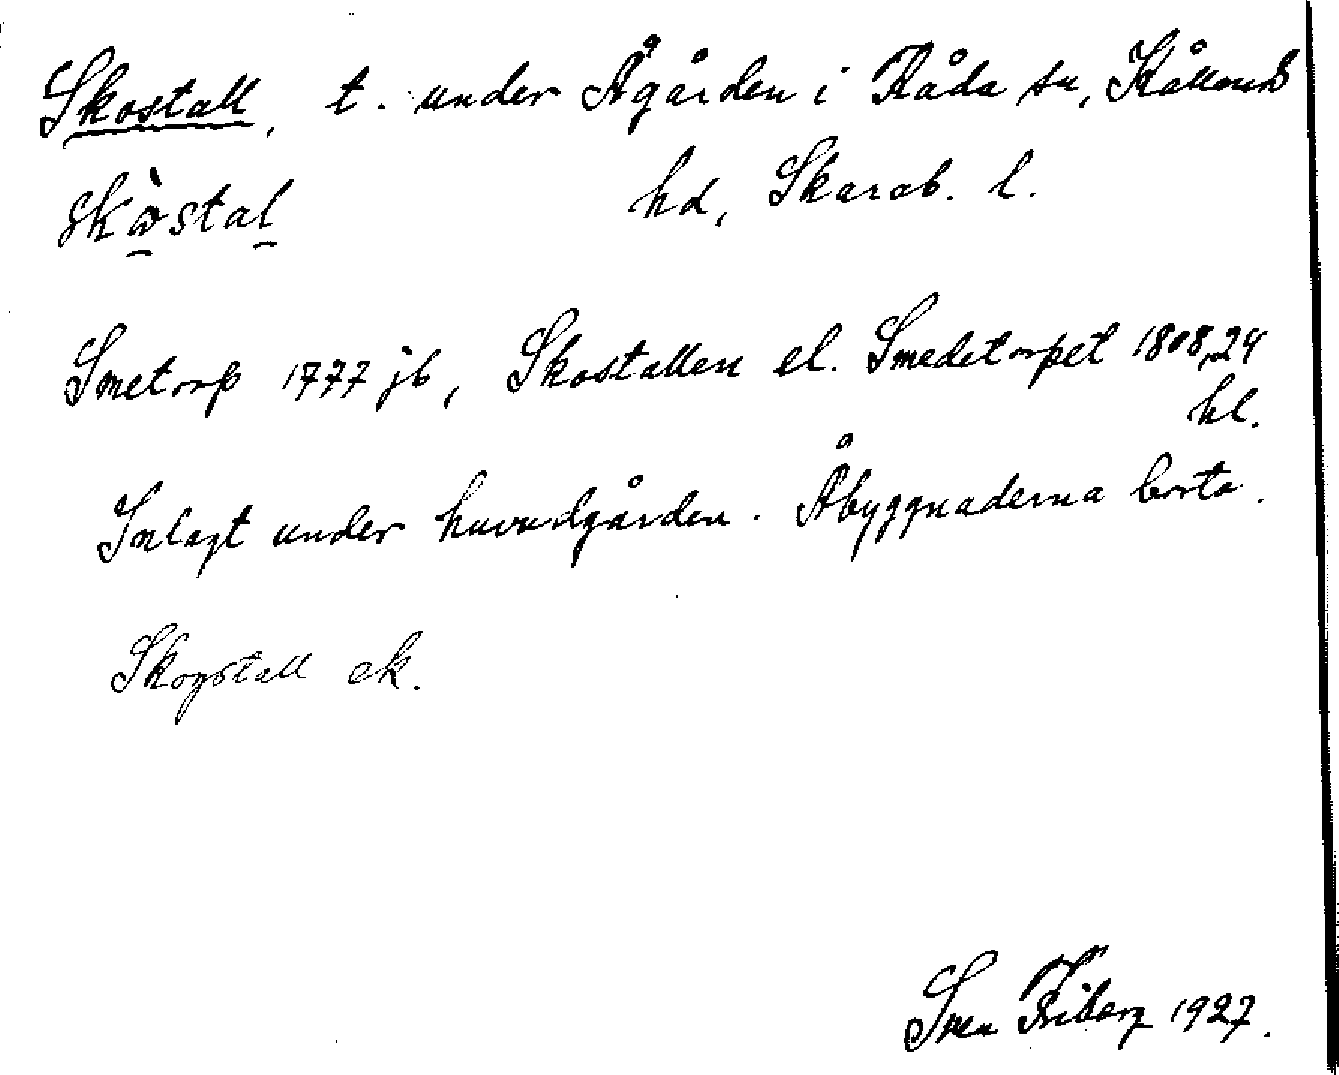 Skostall, t. under Ågården i Råda sn, Kållands
skòstal hd, Skarab. l.
Smetorp 1777 jb, Skostallen el. Smedetorpet 1808,24
hl.
Inlagt under huvudgården. Åbyggnaderna borta.
Skogstall ek.
Sven Friberg 1927.